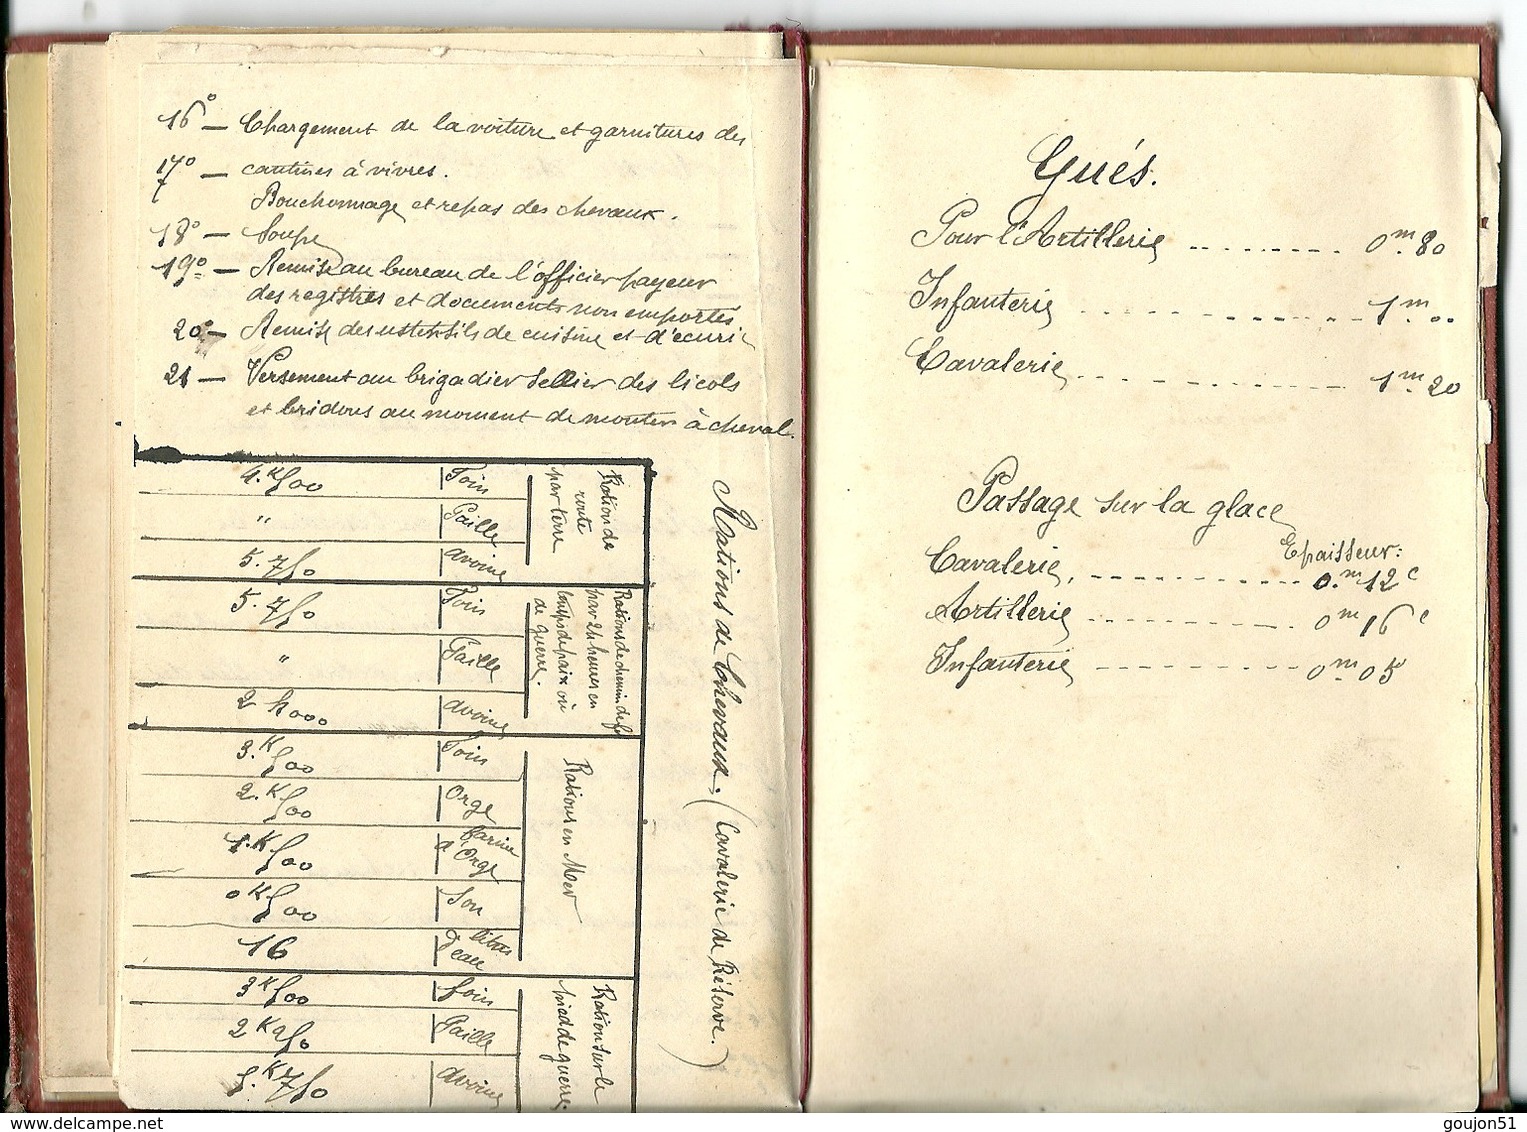 16° — Chargement de la voiture et garnitures des
17° — cantines à vivres.
Bouchonnage et repas des chevaux.
18° — Soupe
19° — Remise au bureau de l'officier payeur
des registres et documents non emportés
20° — Remise des ustensils de cuisine et d'écurie
21 — Versement au brigadier sellier des licols
et bridons au moment de monter à cheval.
Rations de Chevaux. (Cavalerie de Réserve.)
Ration de
route
par terre
Foin 4.K500
Paille "
avoine 5.750
Rations de chemin de fer
par 24 heures en
temps de paix où
de guerre.
Foin 5.750
Paille "
avoine 2 K000
Rations en Mer
Foin 3.K500
Orge 2.K500
farine
d'Orge 1.K500
Son 0K500
litres
d'eau 16
Ration sur le
pied de guerre
foin 3K500
Paille 2K250
avoine 5.K750
Gués.
Pour l'Artillerie 0m.80
Infanterie 1m...
Cavalerie 1m.20
Passage sur la glace
Epaisseur:
Cavalerie, 0.m12c
Artillerie 0m16c
Infanterie 0m.05
delcampe.net
goujon51